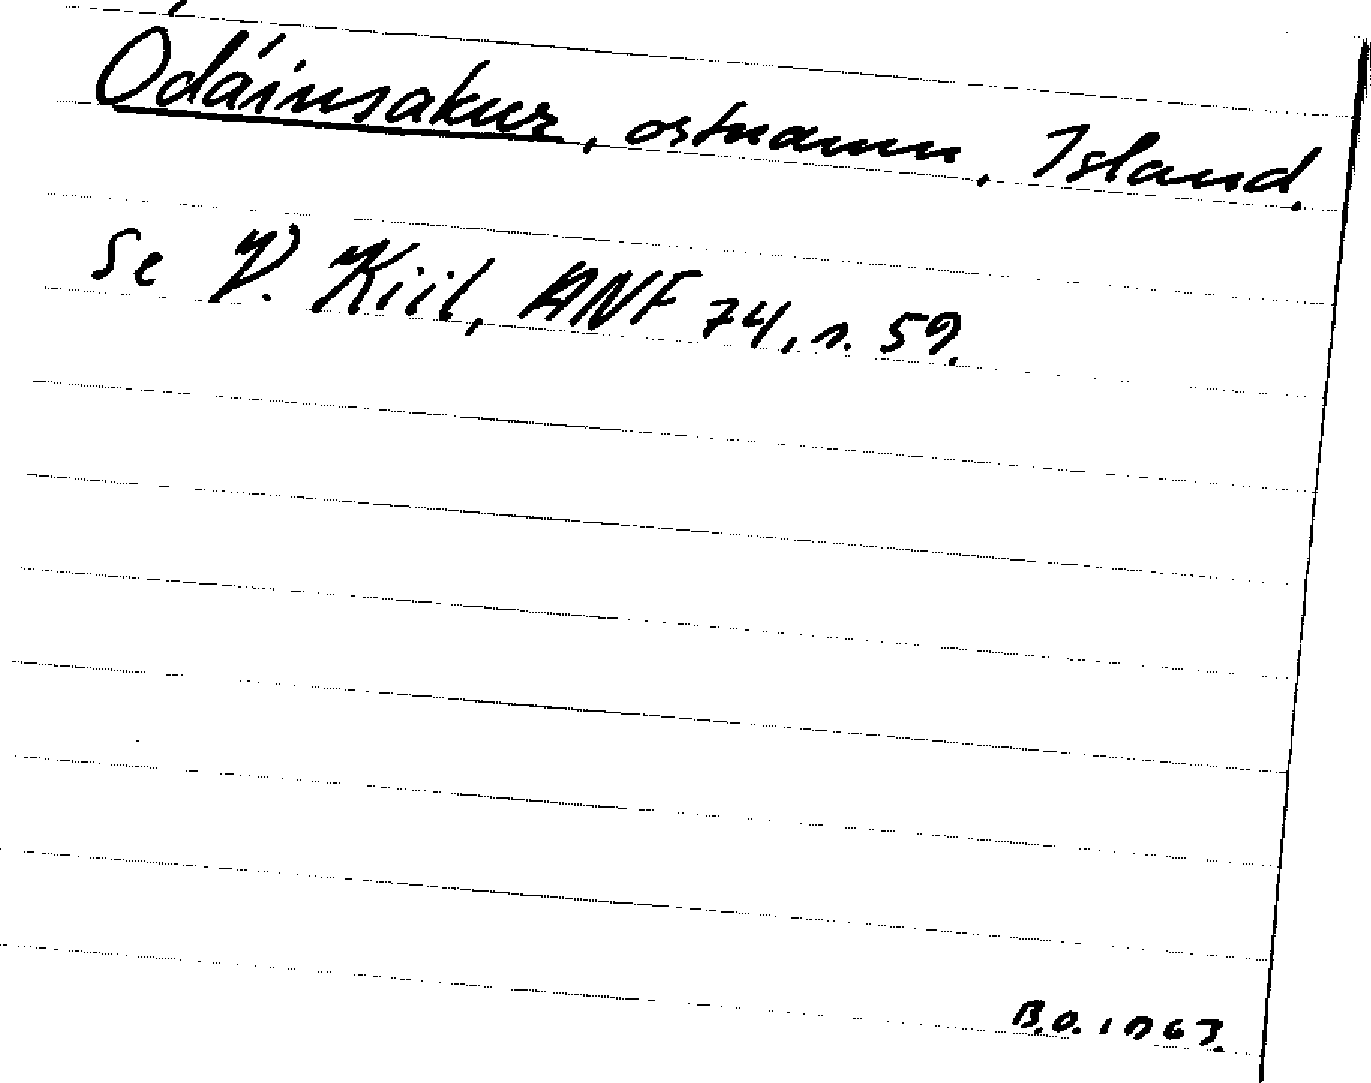 Ódáinsakur, ostnamn, Island.
Se V. Kiil, ANF 74, s. 59.
B.O. 1967.